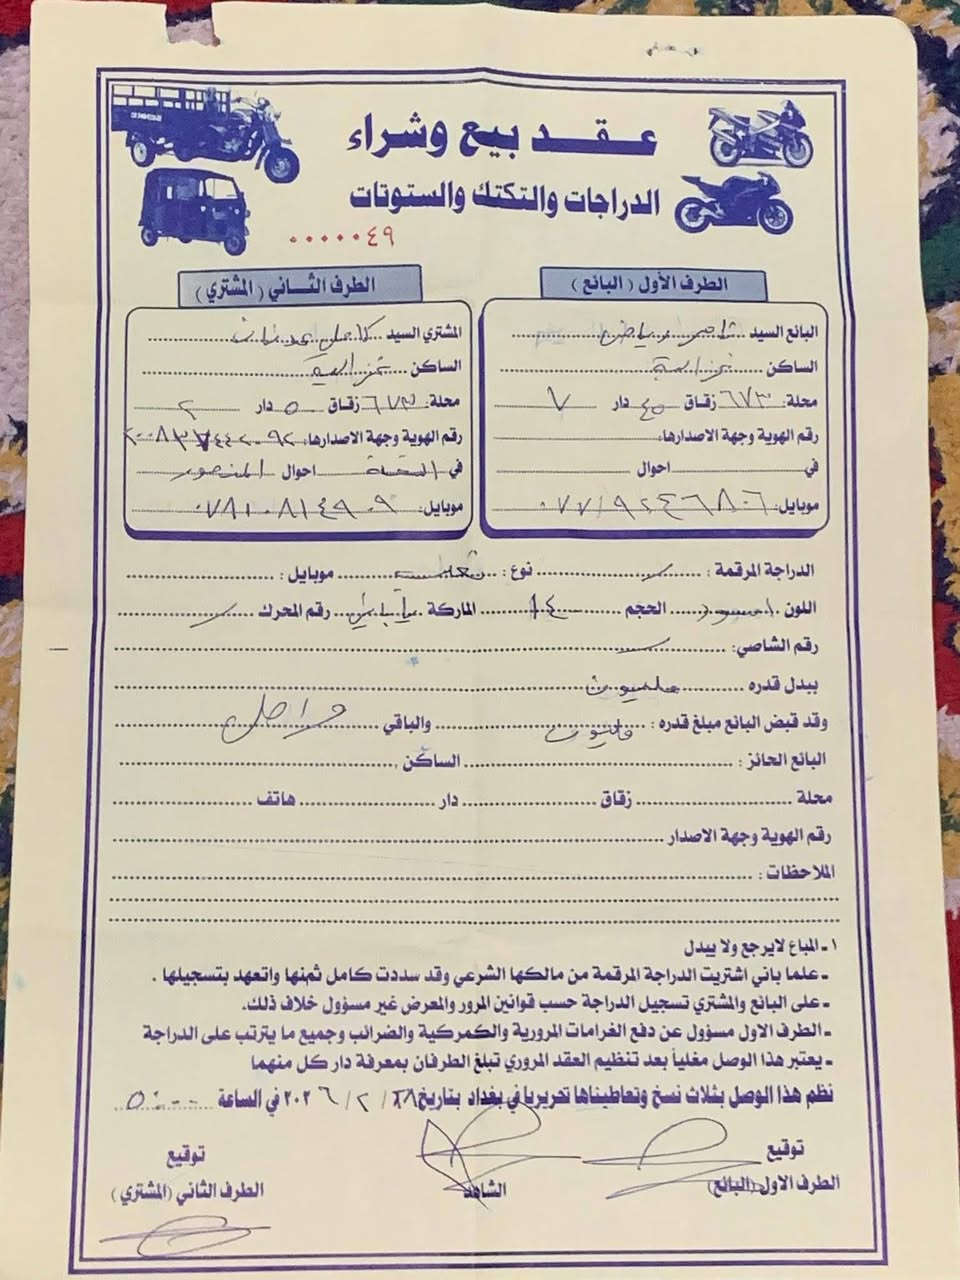 عقد بيع وشراء
الدراجات والتكتك والستوتات
٠٠٠٠٠٤٩
الطرف الأول ( البائع )
البائع السيد
الساكن
محلة: ٦٧٣ زقاق ٤٥ دار ٧
رقم الهوية وجهة الاصدارها:
في احوال
موبايل: ٠٧٧١٩٢٤٦٨٠٦
الطرف الثاني ( المشتري )
المشتري السيد
الساكن
محلة: ٦٧٣ زقاق ٥ دار ٢
رقم الهوية وجهة الاصدارها:
في احوال المنصور
موبايل: ٠٧٨١٠٨١٤٩٠٩
الدراجة المرقمة : نوع : موبايل :
اللون اسود الحجم الماركة رقم المحرك
رقم الشاصي:
ببدل قدره مليون
وقد قبض البائع مبلغ قدره : مليون والباقي واصل
البائع الحائز : الساكن
محلة زقاق دار هاتف
رقم الهوية وجهة الاصدار
الملاحظات :
١ ـ المباع لايرجع ولا يبدل
ـ علما باني اشتريت الدراجة المرقمة من مالكها الشرعي وقد سددت كامل ثمنها واتعهد بتسجيلها .
ـ على البائع والمشتري تسجيل الدراجة حسب قوانين المرور والمعرض غير مسؤول خلاف ذلك.
ـ الطرف الاول مسؤول عن دفع الغرامات المرورية والكمركية والضرائب وجميع ما يترتب على الدراجة
ـ يعتبر هذا الوصل مغلياً بعد تنظيم العقد المروري تبلغ الطرفان بمعرفة دار كل منهما
نظم هذا الوصل بثلاث نسخ وتعاطيناها تحريريا في بغداد بتاريخ ٢٨/ ٢ / ٢٠٢٦ في الساعة ٥:٠٠
توقيع
الطرف الاول (البائع)
الشاهد
توقيع
الطرف الثاني (المشتري )